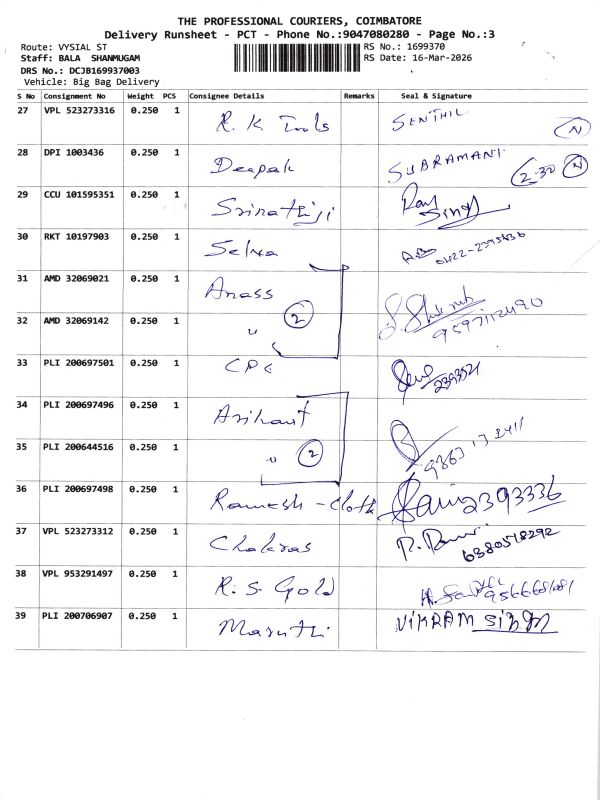 THE PROFESSIONAL COURIERS, COIMBATORE
Delivery Runsheet - PCT - Phone No.:9047080280 - Page No.:3
Route: VYSIAL ST
RS No.: 1699370
Staff: BALA SHANMUGAM
RS Date: 16-Mar-2026
DRS No.: DCJB169937003
Vehicle: Big Bag Delivery
S No Consignment No Weight PCS Consignee Details Remarks Seal & Signature
27 VPL 523273316 0.250 1 R. K Tools SENTHIL N
28 DPI 1003436 0.250 1 Deepak SUBRAMANI 2-30 N
29 CCU 101595351 0.250 1 Srinathiji Singh
30 RKT 10197903 0.250 1 Selva
31 AMD 32069021 0.250 1 Anass
32 AMD 32069142 0.250 1 " 2 9597112490
33 PLI 200697501 0.250 1 CPC 2393521
34 PLI 200697496 0.250 1 Arihant
35 PLI 200644516 0.250 1 " 2
36 PLI 200697498 0.250 1 Ramesh - Cloth 2393336
37 VPL 523273312 0.250 1 6380518292
38 VPL 953291497 0.250 1 R. S. Gold
39 PLI 200706907 0.250 1 Maruthi VIKRAM Singh